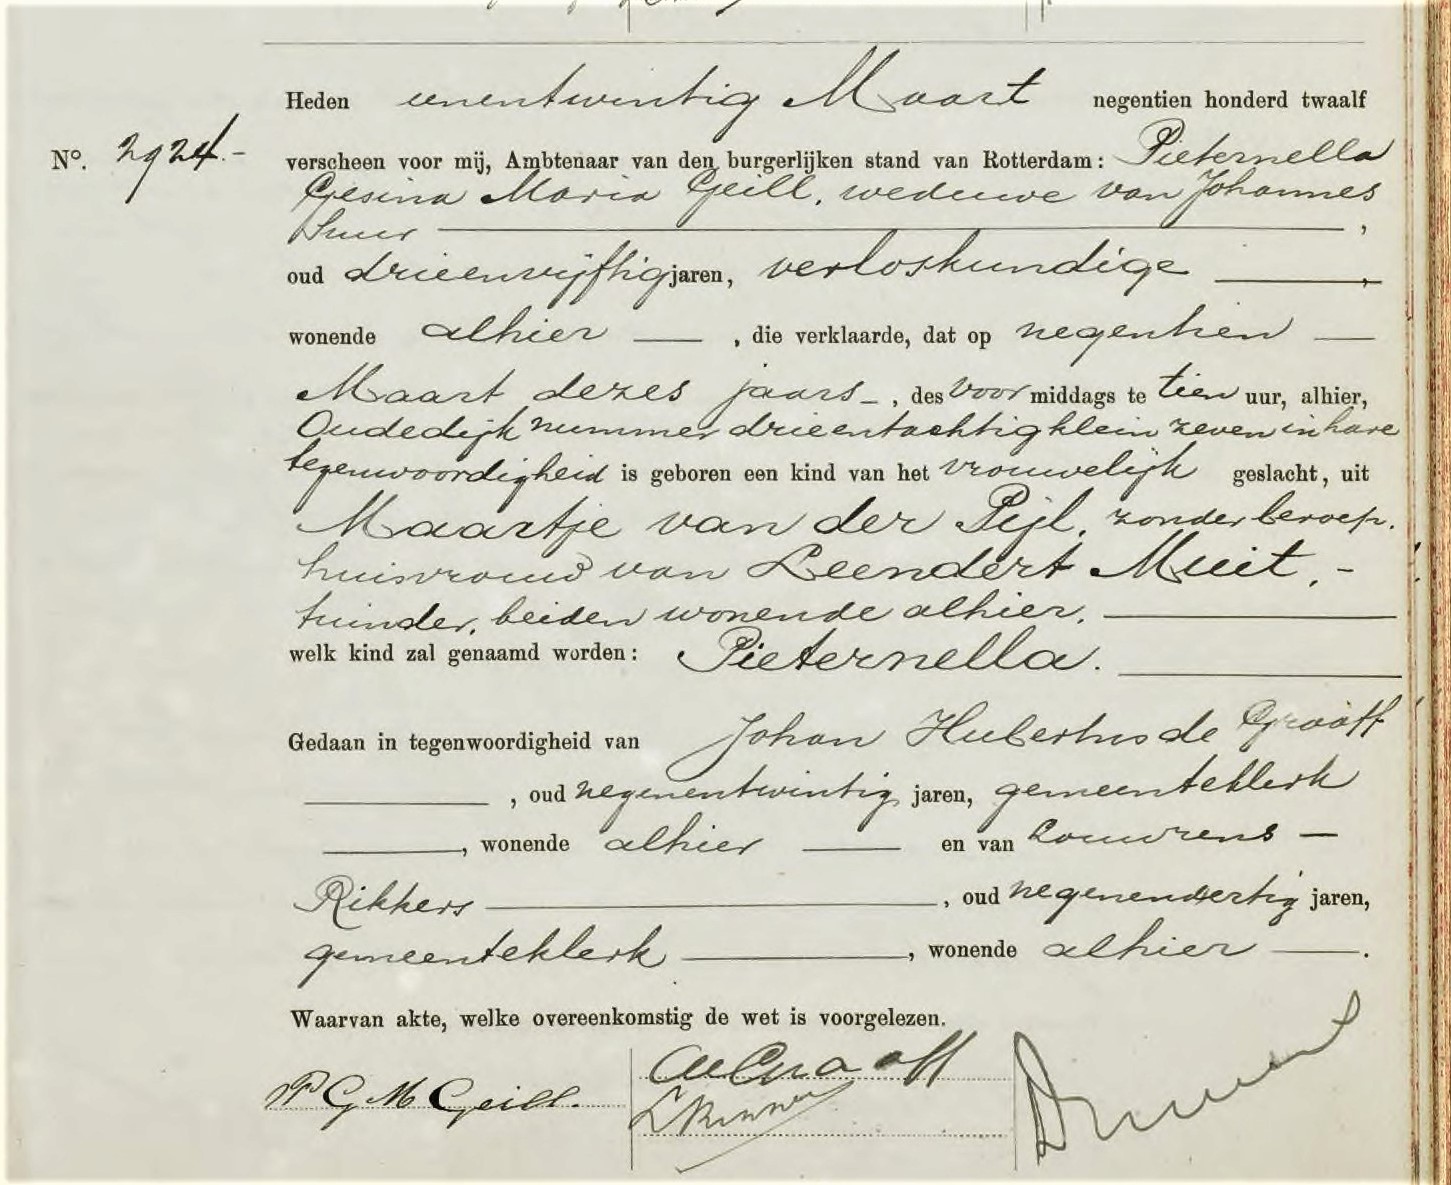 Heden eenentwintig Maart negentien honderd twaalf
No. 2924.-
verscheen voor mij, Ambtenaar van den burgerlijken stand van Rotterdam: Pieternella
Gesina Maria Geill, weduwe van Johannes
Suur ,
oud drieenvijftig jaren, verloskundige ,
wonende alhier , die verklaarde, dat op negentien
Maart dezes jaars , des voor middags te tien uur, alhier,
Oudedijk nummer drieentachtig klein zeven in hare
tegenwoordigheid is geboren een kind van het vrouwelijk geslacht, uit
Maartje van der Pijl, zonder beroep,
huisvrouw van Leendert Muit,-
tuinder, beiden wonende alhier,
welk kind zal genaamd worden: Pieternella.
Gedaan in tegenwoordigheid van Johan Hubertus de Graaff
, oud negenentwintig jaren, gemeenteklerk
, wonende alhier en van Louwrens
Rikkers , oud negenendertig jaren,
gemeenteklerk , wonende alhier .
Waarvan akte, welke overeenkomstig de wet is voorgelezen.
P G M Geill.
de Graaff